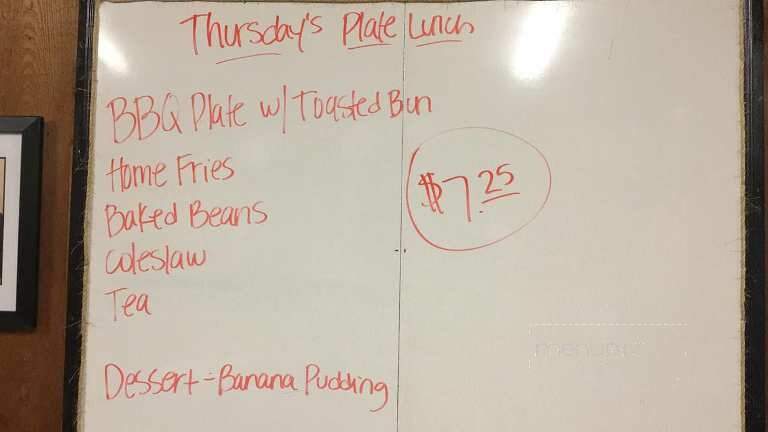 Thursday's Plate Lunch
BBQ Plate w/ Toasted Bun
Home Fries
$7.25
Baked Beans
Coleslaw
Tea
Dessert - Banana Pudding